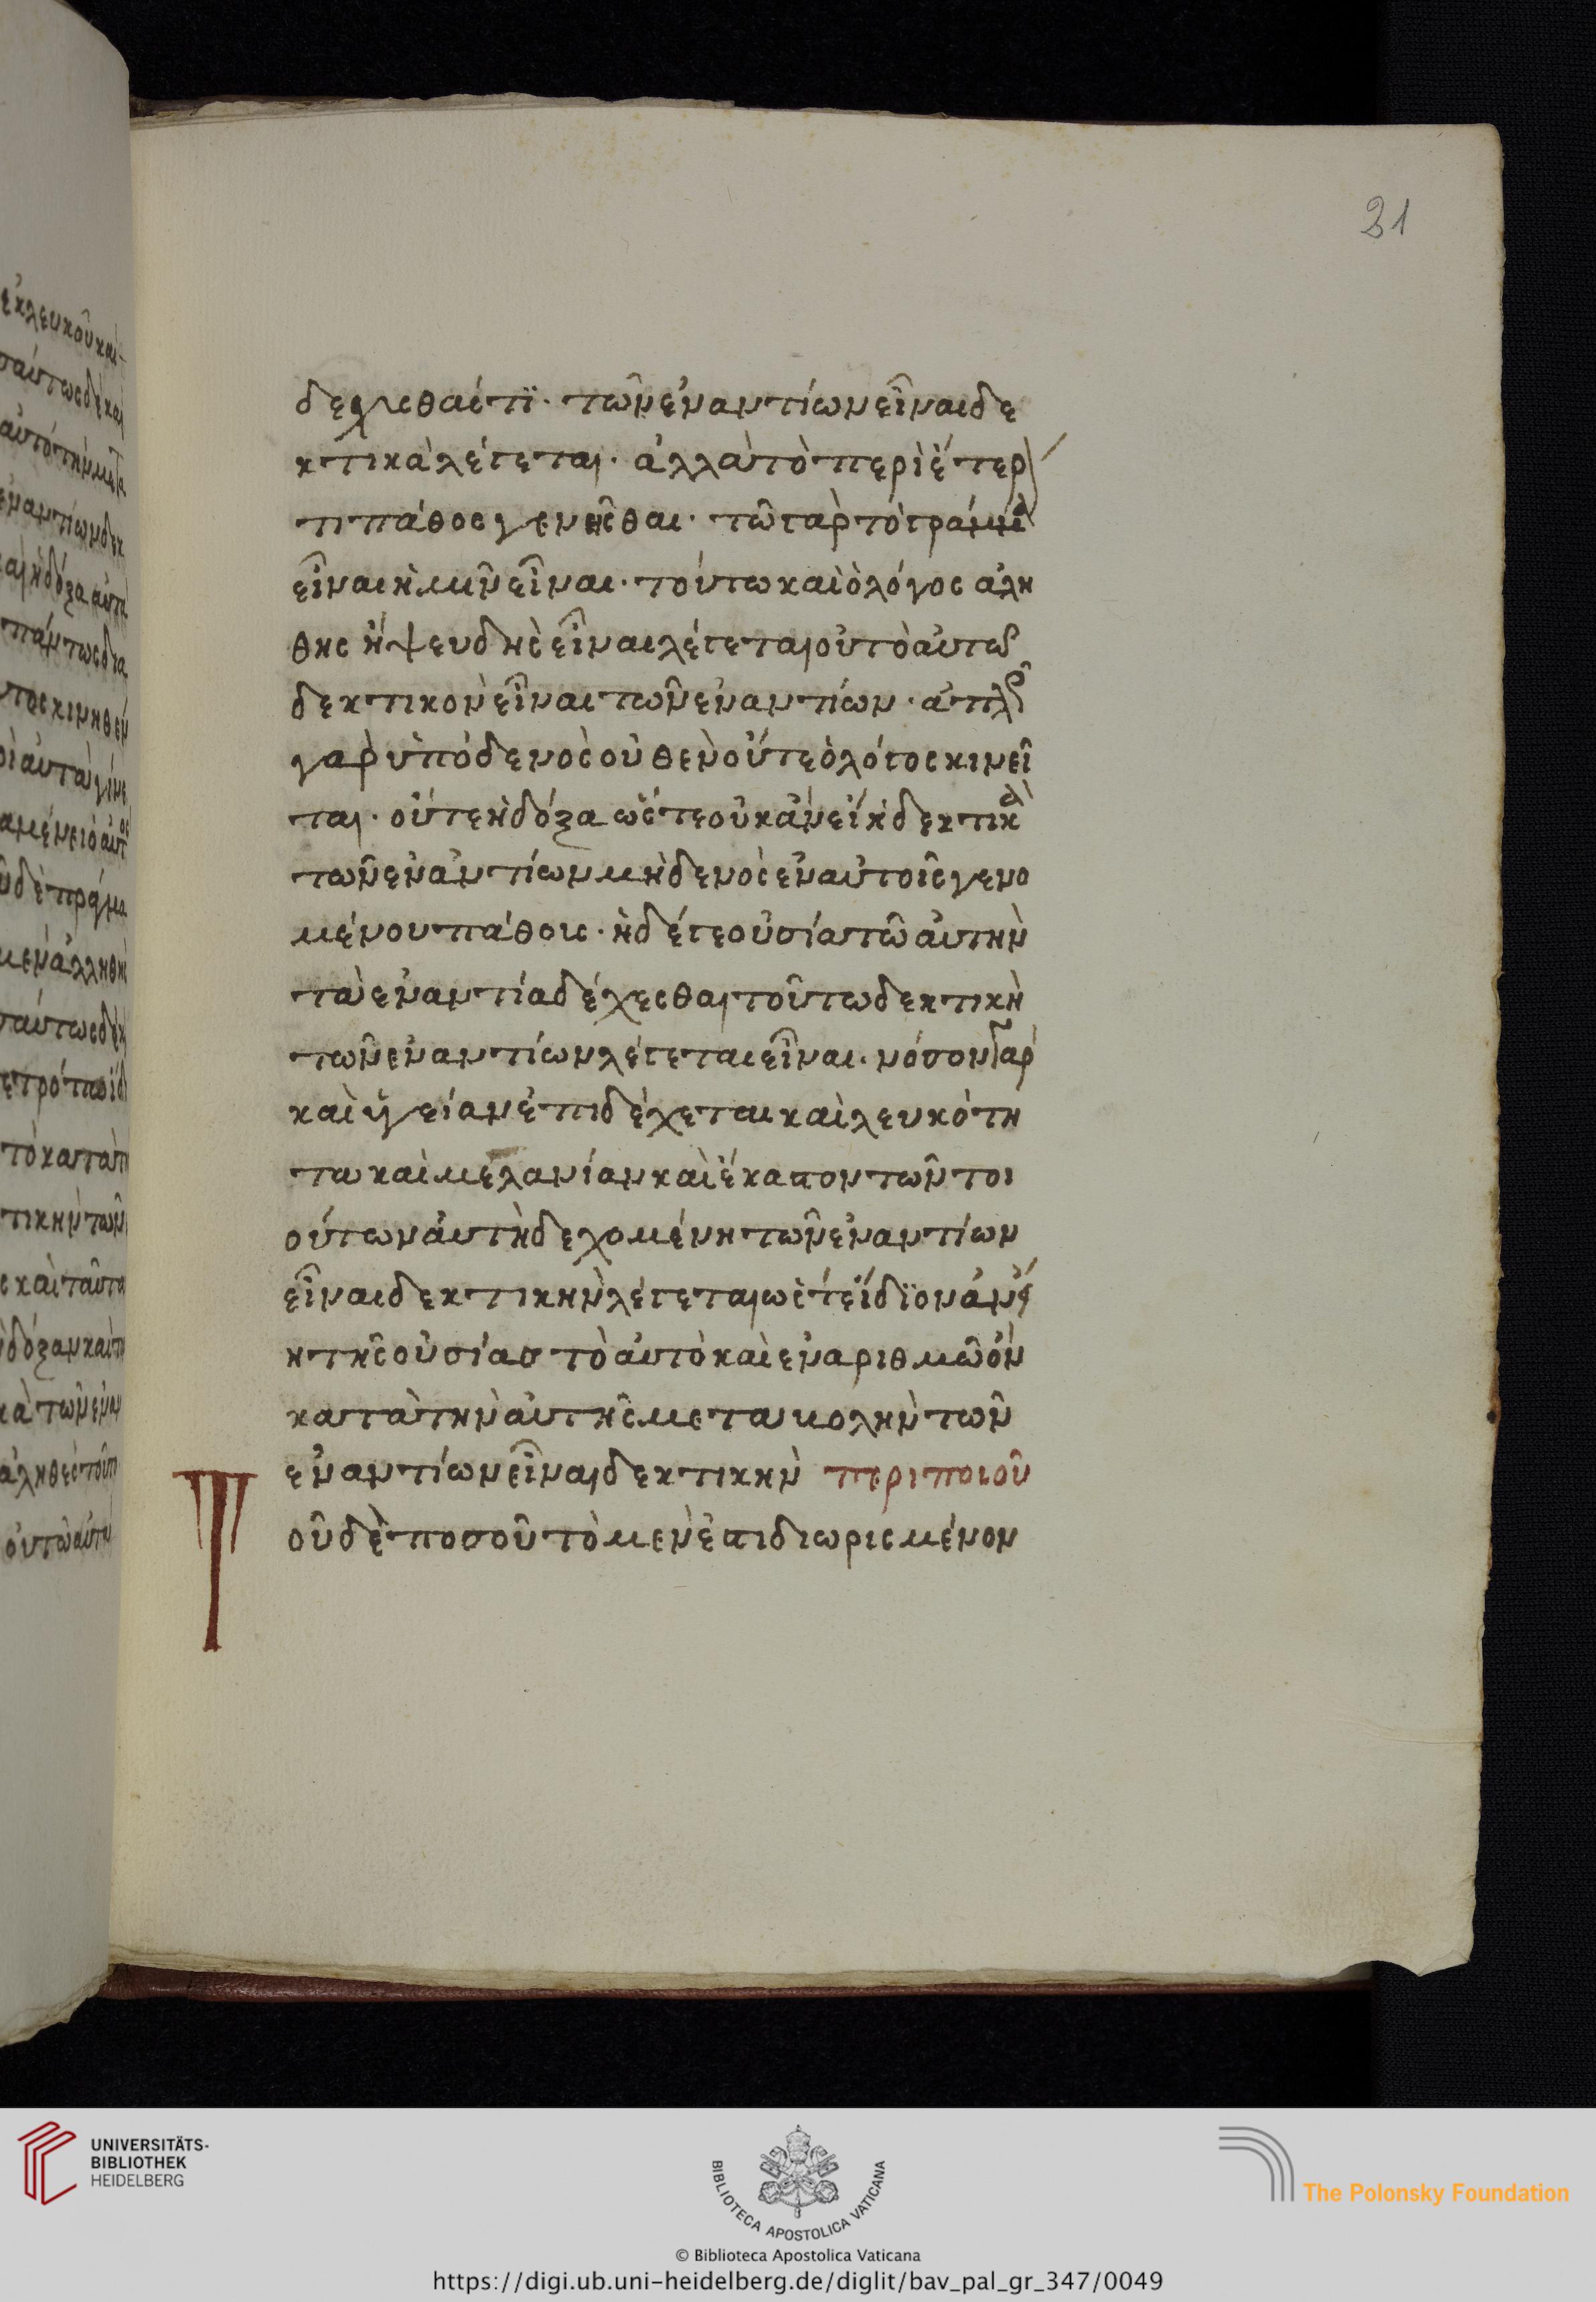 21
δεχεσθαί τϊ· τῶν ἐναντίων εἶναι δε
κτικὰ λέγεται· ἀλλὰ τὸ περὶ ἕτερ
τι πάθος γενέσθαι· τῶ γὰρ τὸ πράγμα
εἶναι ἢ μὴ εἶναι· τούτω καὶ ὁ λόγος αλη
θης ἢ ψευδὴς εἶναι λέγεται οὐ τὸ αὐτω
δεκτικὸν εἶναι τῶν ἐναντίων· ἁπλῶ
γὰρ ὑπὸδενὸς οὐθεν οὔτε ὁ λόγος κινεῖ
ται· οὔτε ἡ δόξα ὥστε οὐκ ἂν εἴη δεκτικὰ
τῶν ἐναντίων μηδενὸς ἐν αὐτοῖς γενο
μένου πάθους· ἡ δέ γε οὐσία τῶ αὐτὴν
τὰ ἐναντία δέχεσθαι τοῦτω δεκτικὴ
τῶν ἐναντίων λέγεται εἶναι· νόσον γὰρ
καὶ ὑγείαν ἐπιδέχεται καὶ λευκότη
τα καὶ μελανίαν καὶ ἕκαστον τῶν τοι
ούτων αὐτὴ δεχομένη τῶν ἐναντίων
εἶναι δεκτικὴν λέγεται ὡστέ ἴδϊον ἂν εἴ
η τῆς οὐσίας τὸ αὐτὸ καὶ ἐν αριθμῶ ὂν
κατὰ τὴν αὐτῆς μεταβολὴν τῶν
ἐναντίων εἶναι δεκτικὴν περι ποιοῦ
Τοῦ δὲ ποσοῦ τὸ μεν ἐστι διωρισμένον
UNIVERSITÄTS-
BIBLIOTHEK
HEIDELBERG
BIBLIOTECA APOSTOLICA VATICANA
The Polonsky Foundation
© Biblioteca Apostolica Vaticana
https://digi.ub.uni-heidelberg.de/diglit/bav_pal_gr_347/0049